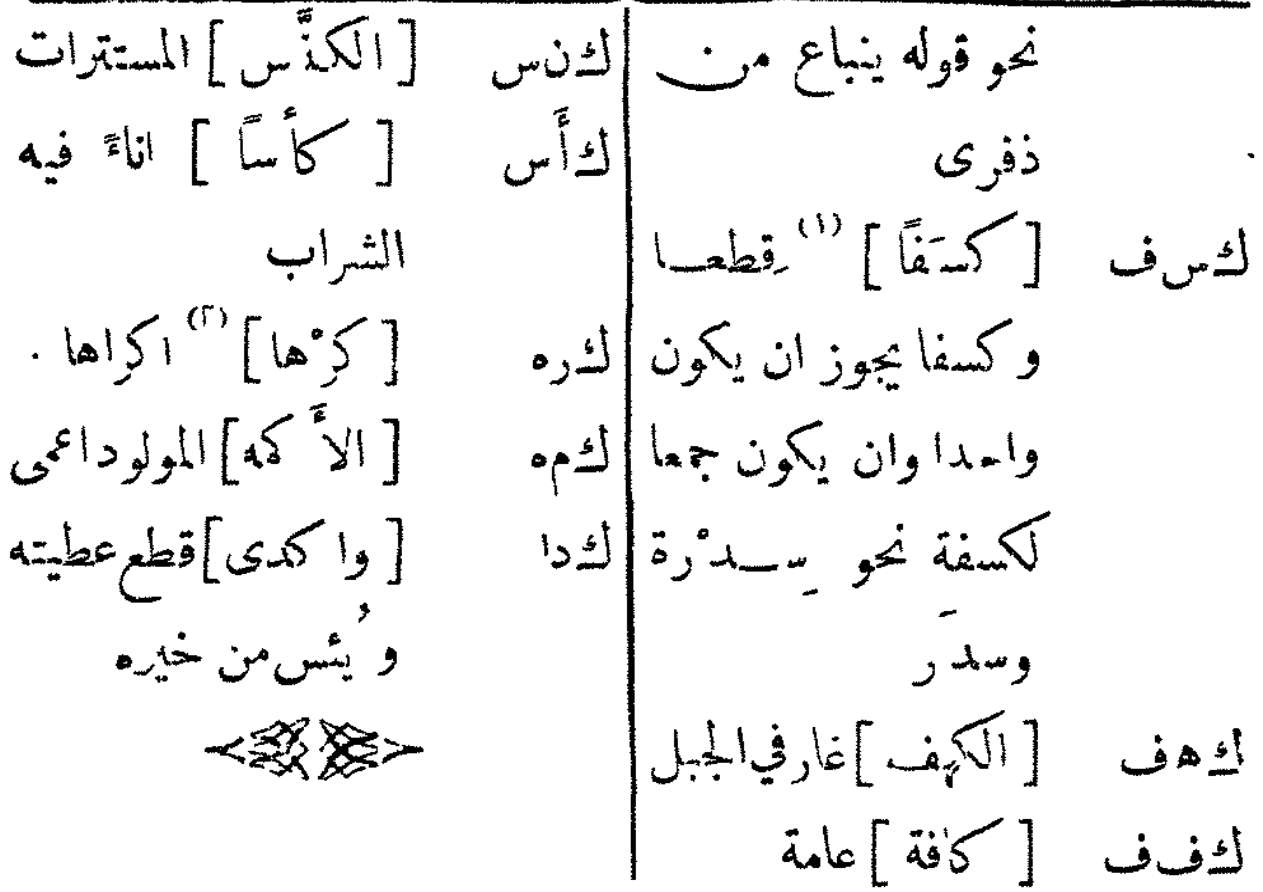 نحو قوله ينباع من
ذفرى
ك س ف [كسَفًا] (١) قِطعا
وكسفا يجوز ان يكون
واحدا وان يكون جمعا
لكسفةٍ نحو سِدْرة
وسدر
ك ه ف [الكهف] غار في الجبل
ك ف ف [كافة] عامة
ك ن س [الكنَّس] المستترات
ك أَ س [كأساً] اناءً فيه
الشراب
ك ر ه [كرْها] (٢) اكراها .
ك م ه [الأَكمه] المولود اعمى
ك د ا [واكدى] قطع عطيته
ويُئس من خيره